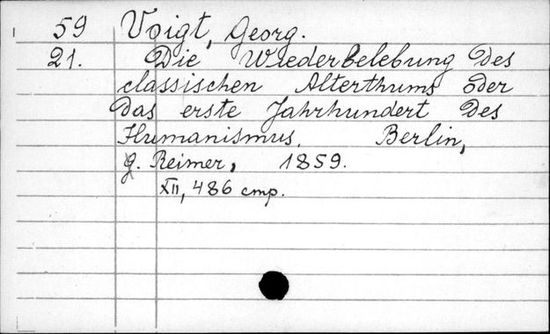 59 Voigt, Georg.
21. Die Wiederbelebung des
classischen Alterthums oder
das erste Jahrhundert des
Humanismus. Berlin,
G. Reimer, 1859.
XII, 486 стр.